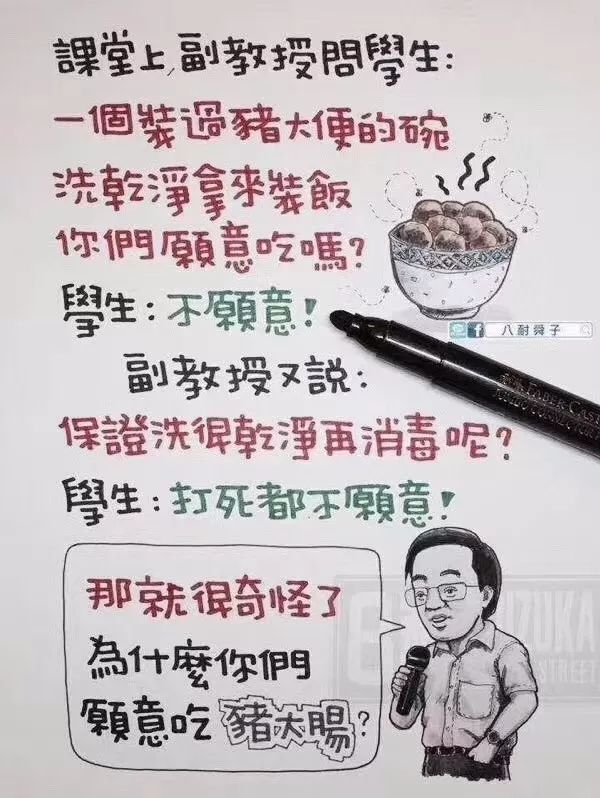 課堂上,副教授問學生:
一個裝過豬大便的碗
洗乾淨拿來裝飯
你們願意吃嗎?
學生:不願意!
八耐舜子
副教授又說:
保證洗得乾淨再消毒呢?
學生:打死都不願意!
那就很奇怪了
為什麼你們
願意吃豬大腸?
FABER CAST
STREET